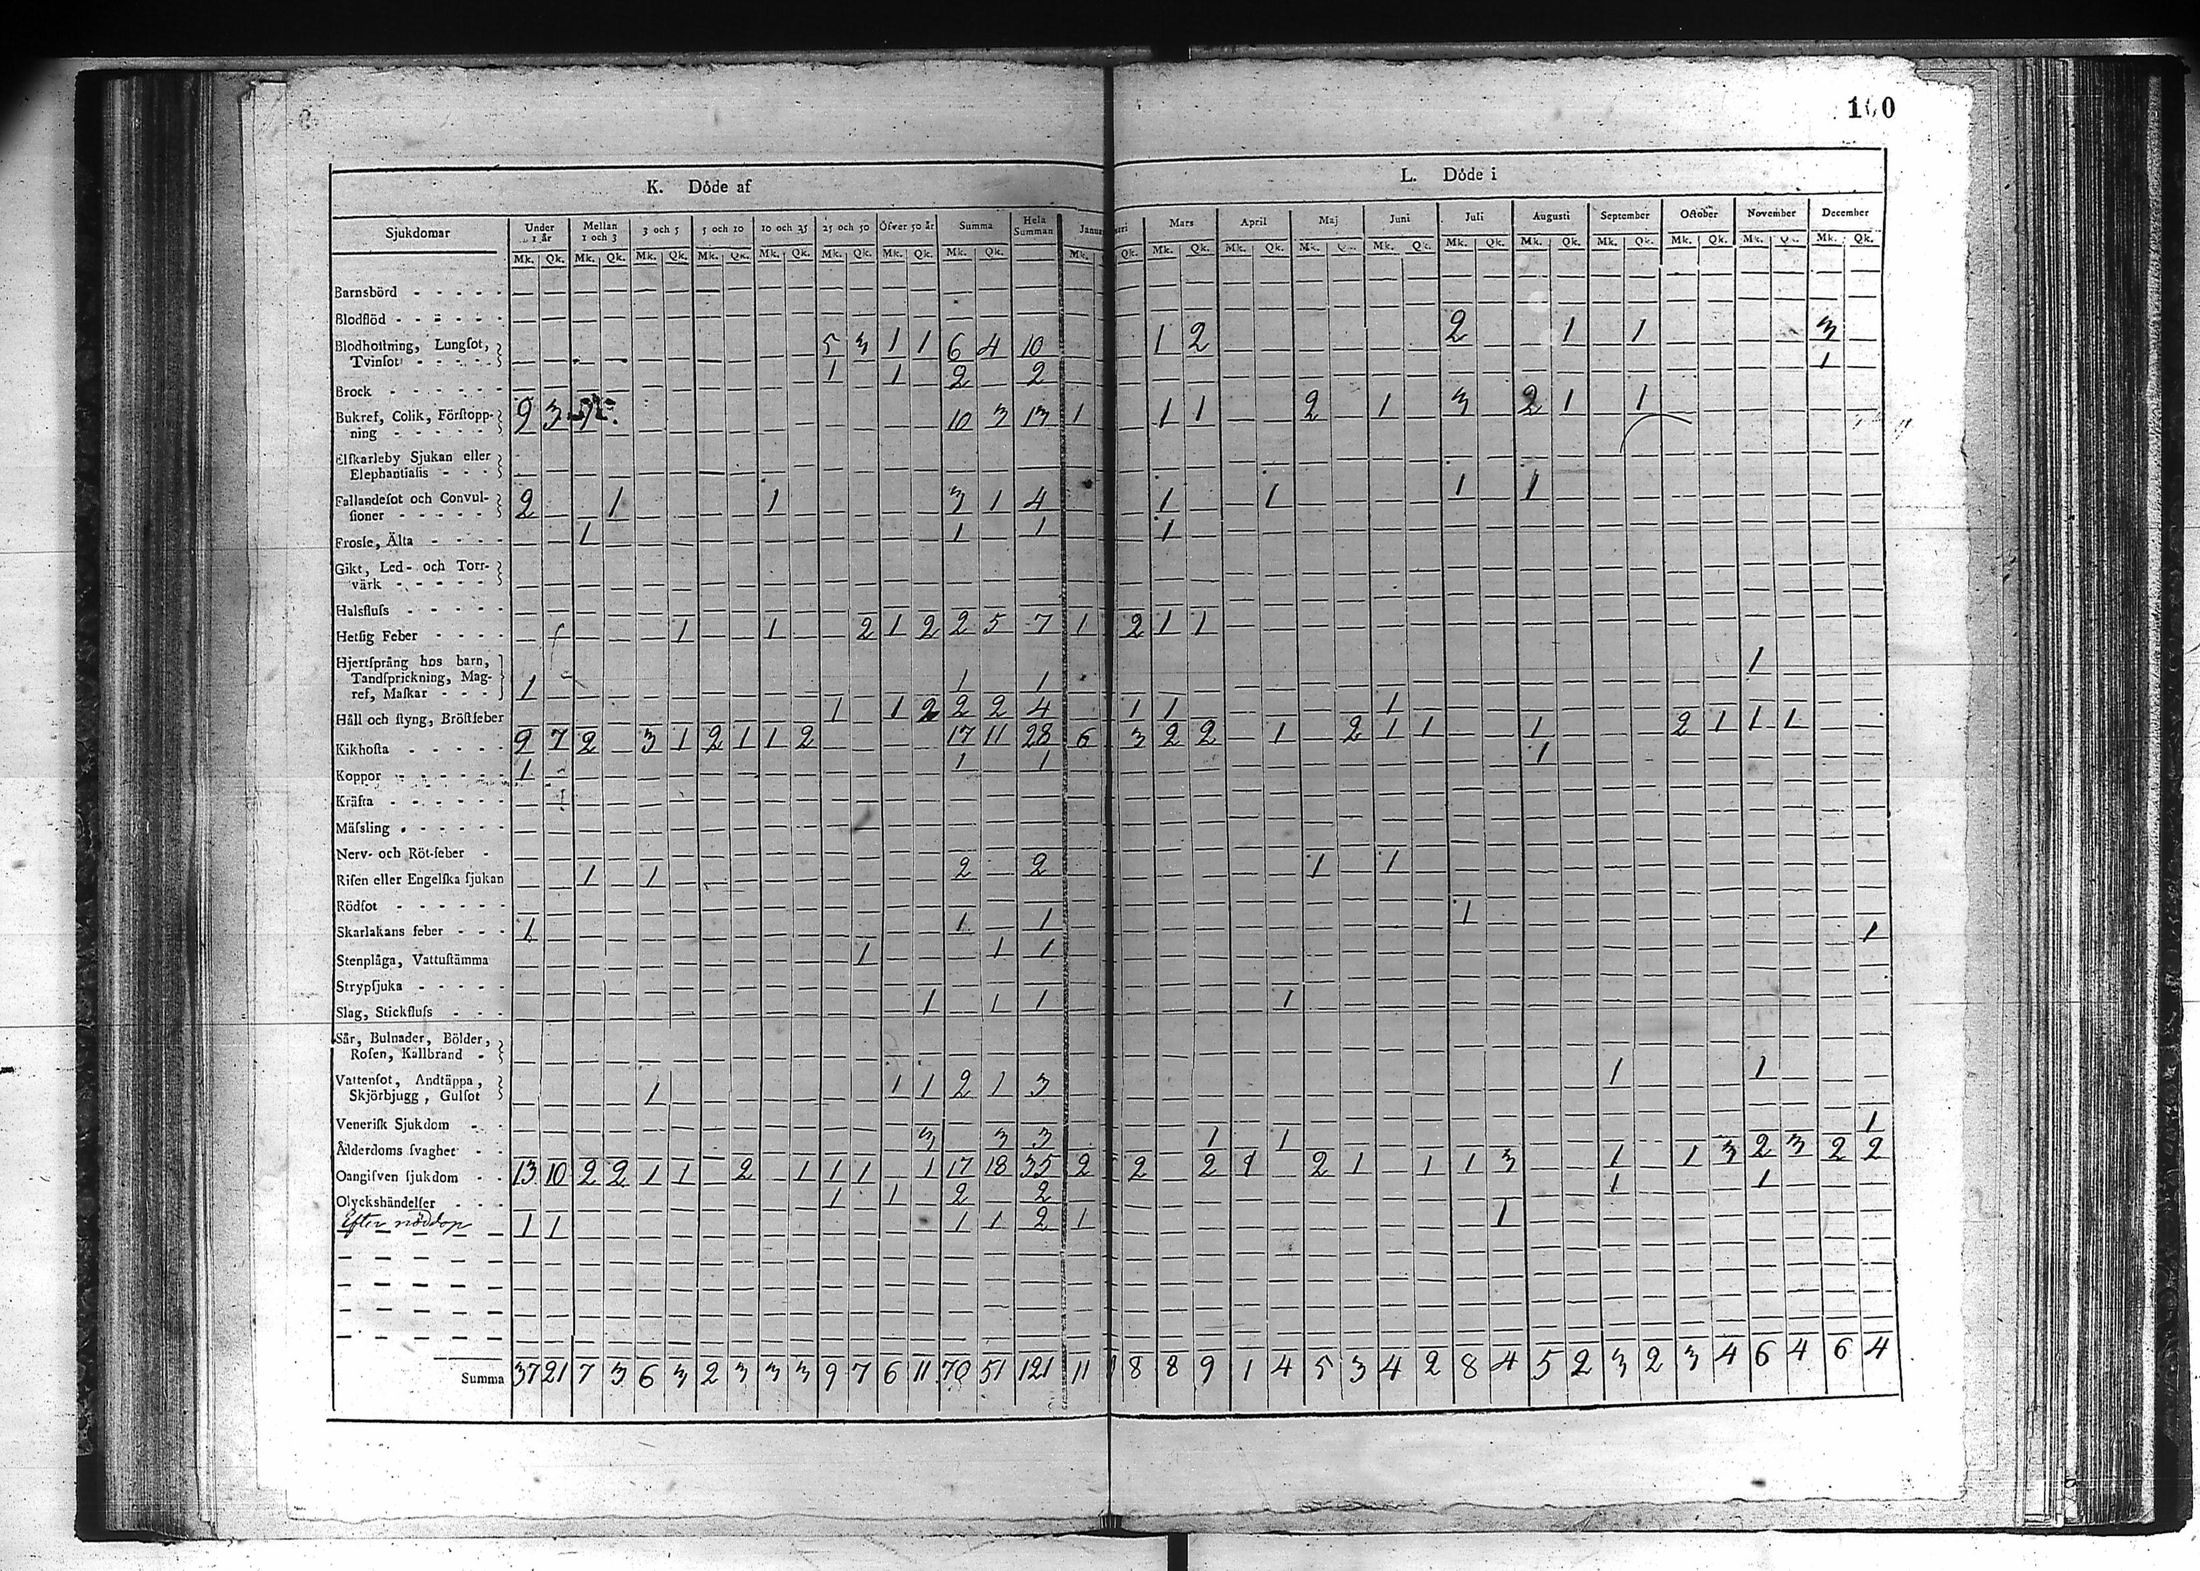 100
K. Döde af
L. Döde i
Sjukdomar Under 1 år Mellan 1 och 3 3 och 5 5 och 10 10 och 25 25 och 50 Öfver 50 år Summa Hela Summan Januari Mars April Maj Juni Juli Augusti September October November December
Mk. Qk. Mk. Qk. Mk. Qk. Mk. Qk. Mk. Qk. Mk. Qk. Mk. Qk. Mk. Qk. Mk. Qk. Mk. Qk. Mk. Qk. Mk. Qk. Mk. Qk. Mk. Qk. Mk. Qk. Mk. Qk. Mk. Qk. Mk. Qk. Mk. Qk.
Barnsbörd
Blodflöd
Blodhostning, Lungſot,
Tvinſot 5 3 1 1 6 4 10 1 2 2 1 1 3
Brock 1 1 2 2 1
Bukref, Colik, Förſtopp-
ning 9 3 10 3 13 1 1 1 2 1 3 2 1 1
Elſkarleby Sjukan eller
Elephantiaſis
Fallandeſot och Convul-
ſioner 2 1 1 3 1 4 1 1 1 1
Frosſe, Älta 1 1 1 1
Gikt, Led- och Torr-
värk
Halsfluſs
Hetſig Feber 1 1 2 1 2 2 5 7 1 2 1 1
Hjertſprång hos barn,
Tandſprickning, Mag-
ref, Maſkar 1 1 1 1
Håll och ſtyng, Bröſtfeber 1 1 2 2 2 4 1 1 1
Kikhoſta 9 7 2 3 1 2 1 1 2 17 11 28 6 3 2 2 1 2 1 1 1 2 1 1 1
Koppor 1 1 1 1
Kräfta
Mäſsling
Nerv- och Röt-feber
Riſen eller Engelſka ſjukan 1 1 2 2 1 1
Rödſot
Skarlakans feber 1 1 1 1
Stenplåga, Vattuſtämma 1 1 1 1
Strypſjuka
Slag, Stickfluſs 1 1 1 1
Sår, Bulnader, Bölder,
Roſen, Kallbrand
Vattenſot, Andtäppa,
Skjörbjugg, Gulſot 1 1 1 2 1 3 1 1
Veneriſk Sjukdom
Ålderdoms ſvaghet 3 3 3 1 1 1
Oangifven ſjukdom 13 10 2 2 1 1 2 1 1 1 1 17 18 35 2 2 2 1 2 1 1 1 3 1 1 3 2 3 2 2
Olyckshändelſer 1 1 2 2 1 1
Efter nöddop 1 1 1 1 2 1 1
Summa 37 21 7 3 6 3 2 3 3 3 9 7 6 11 70 51 121 11 8 8 9 1 4 5 3 4 2 8 4 5 2 3 2 3 4 6 4 6 4